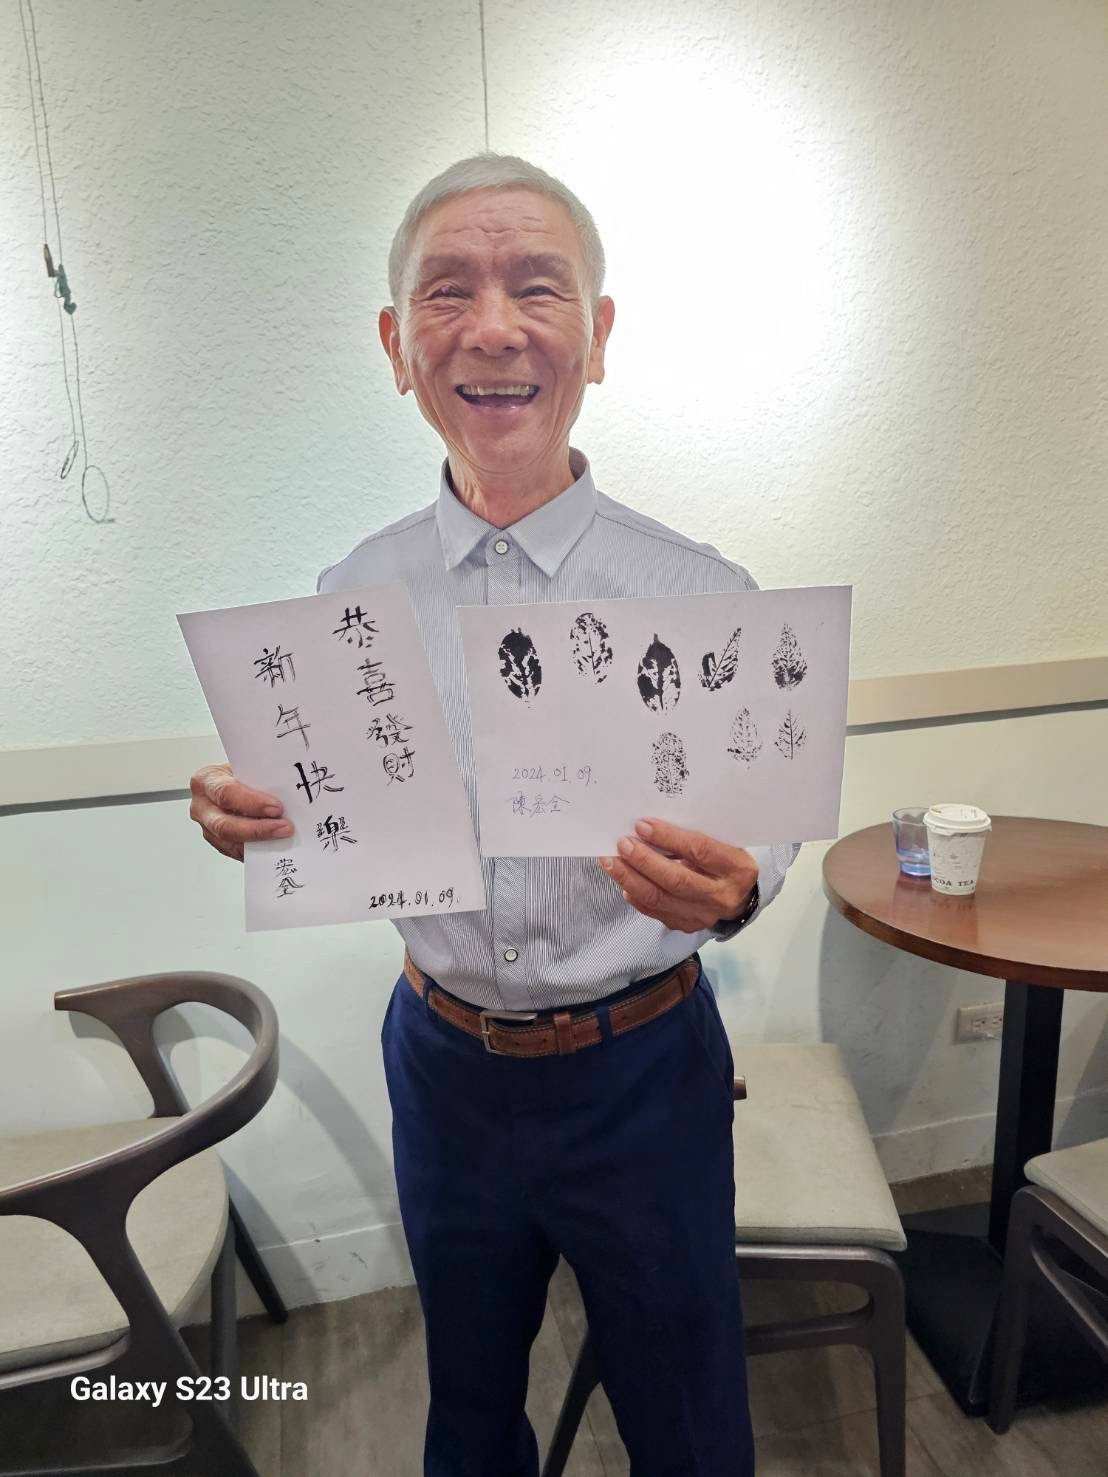 恭喜發財
新年快樂
宏全
2024.01.09.
2024.01.09.
陳宏全
COA TEA
Galaxy S23 Ultra